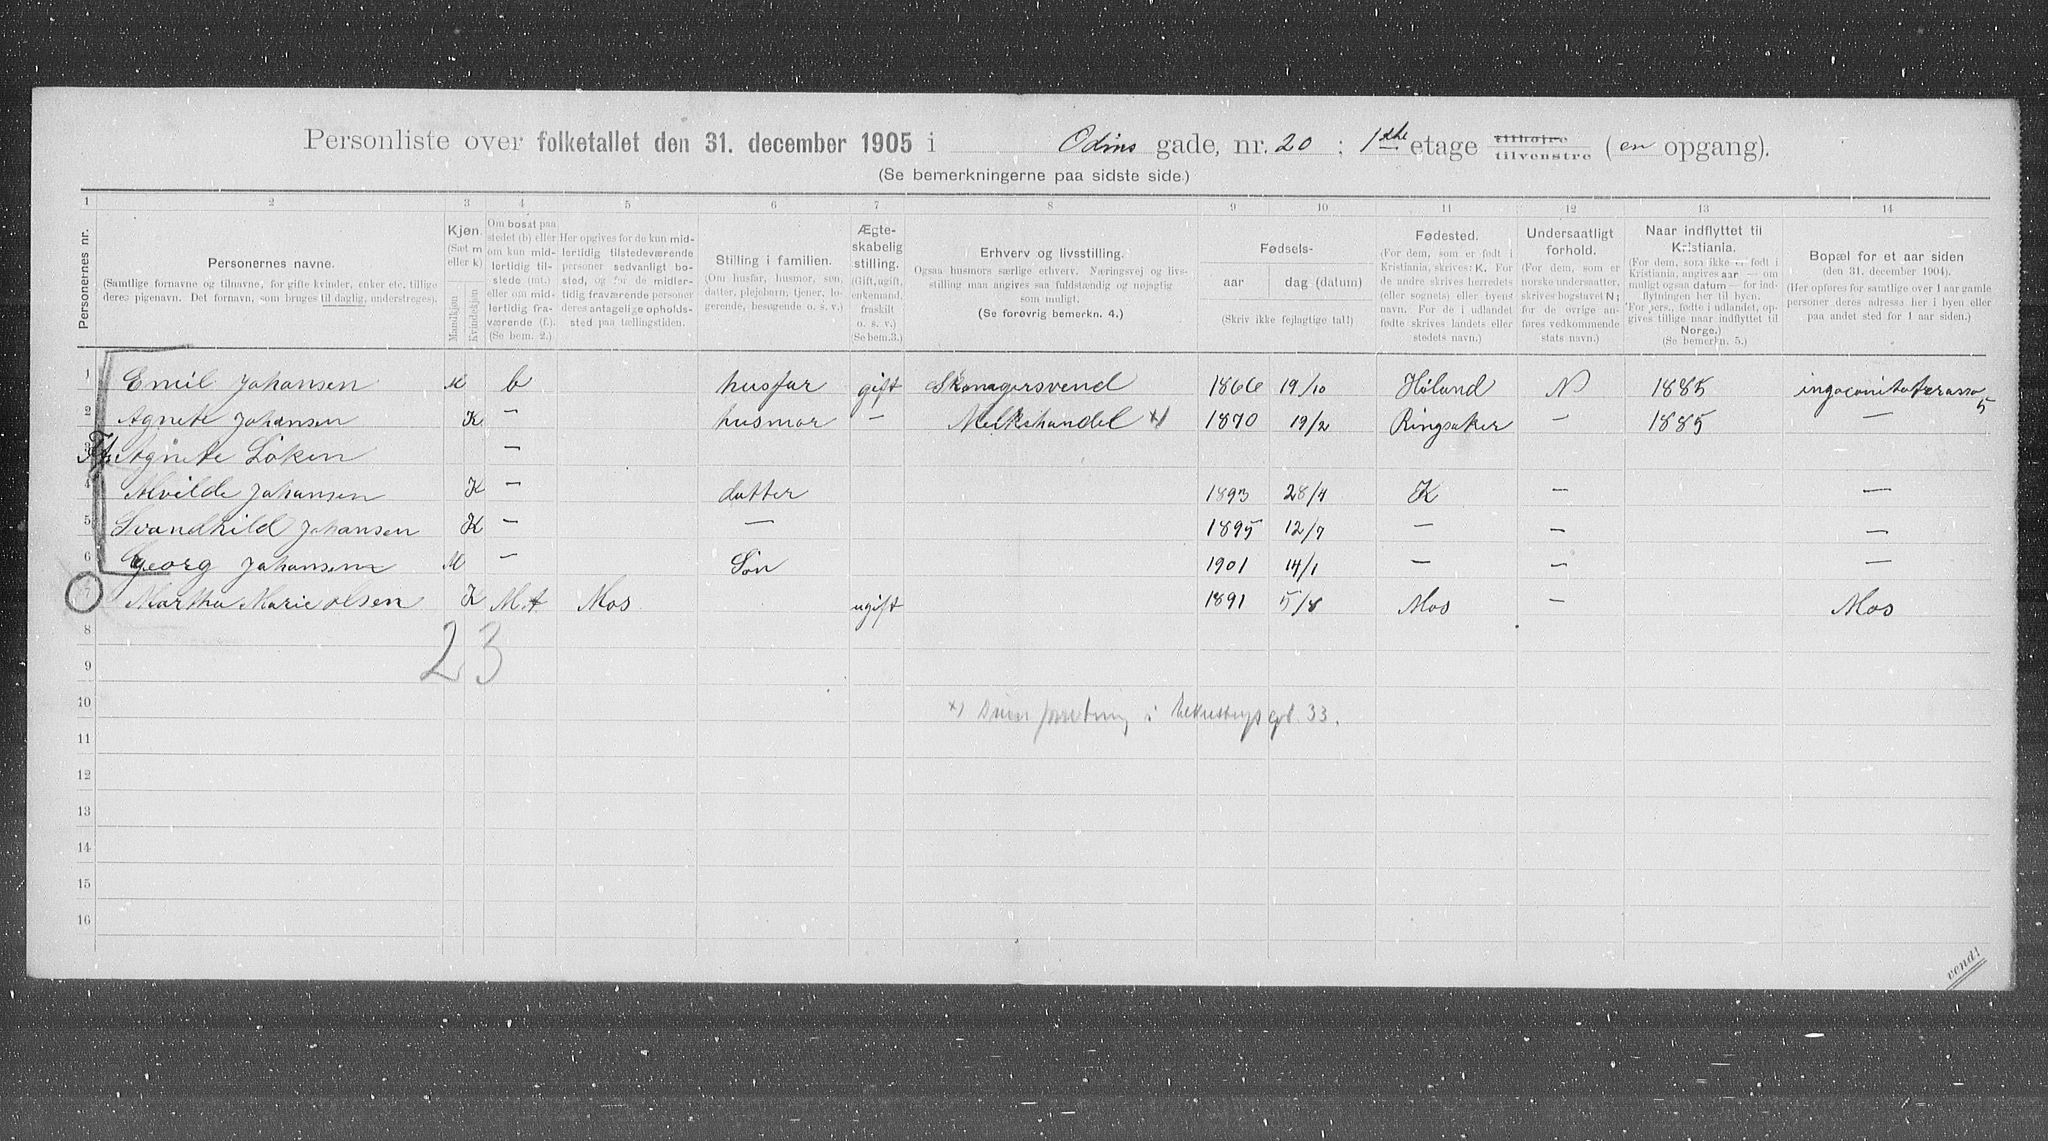 Personliste over folketallet den 31. december 1905 i Odins gade, nr. 20 ; 1ste etage tilhøjre tilvenstre (en opgang).
(Se bemerkningerne paa sidste side.)
1 2 3 4 5 6 7 8 9 10 11 12 13 14
Personernes nr.
Personernes navne.
(Samtlige fornavne og tilnavne, for gifte kvinder, enker etc. tillige
deres pigenavn. Det fornavn, som bruges til daglig, understreges).
Kjøn.
(Sæt m
eller k)
Mandkjøn
Kvindekjøn
Om bosat paa
stedet (b) eller
om kun mid-
lertidig til-
stede (mt.)
eller om mid-
lertidig fra-
værende (f.).
(Se bem. 2.)
Her opgives for de kun mid-
lertidig tilstedeværende
personer sedvanligt bo-
sted, og for de midler-
tidig fraværende personer
deres antagelige opholds-
sted paa tællingstiden.
Stilling i familien.
(Om husfar, husmor, søn,
datter, plejebørn, tjener, lo-
gerende, besøgende o. s. v.)
Ægte-
skabelig
stilling.
(Gift, ugift,
enkemand,
fraskilt
o. s. v.)
(Se bem.3.)
Erhverv og livsstilling.
Ogsaa husmors særlige erhverv. Næringsvej og livs-
stilling maa angives saa fuldstændig og nøjagtig
som muligt.
(Se forøvrig bemerkn. 4.)
Fødsels-
aar dag (datum)
(Skriv ikke fejlagtige tal!)
Fødested.
(For dem, som er født i
Kristiania, skrives: K. For
de andre skrives herredets
(eller sognets) eller byens
navn. For de i udlandet
fødte skrives landets eller
stedets navn.)
Undersaatligt
forhold.
(For dem, som er
norske undersaatter,
skrives bogstavet N;
for de øvrige an-
føres vedkommende
stats navn.)
Naar indflyttet til
Kristiania.
(For dem, som ikke er født i
Kristiania, angives aar — om
muligt ogsaa datum — for ind-
flytningen her til byen.
For pers., fødte i udlandet, op-
gives tillige naar indflyttet til
Norge.)
(Se bemerkn. 5.)
Bopæl for et aar siden
(den 31. december 1904).
(Her opføres for samtlige over 1 aar gamle
personer deres adresse her i byen eller
paa andet sted for 1 aar siden.)
1 Emil Johansen M b husfar gift Skomagersvend 1866 19/10 Høland N 1885 ingaconitoterasse 5
2 Agnete Johansen K — husmor — Melkehandel x) 1870 19/2 Ringsaker — 1885 —
3 Agnete Løken —
4 Alvilde Johansen K — datter 1893 28/4 K — —
5 Svandhild Johansen K — — 1895 12/7 — — —
6 Georg Johansen M — Søn 1901 14/1 — — —
7 Martha Marie Olsen K M.t Mos ugift 1891 5/8 Mos — Mos
8
23
9
10
x) i 33.
11
12
13
14
15
16
vend!